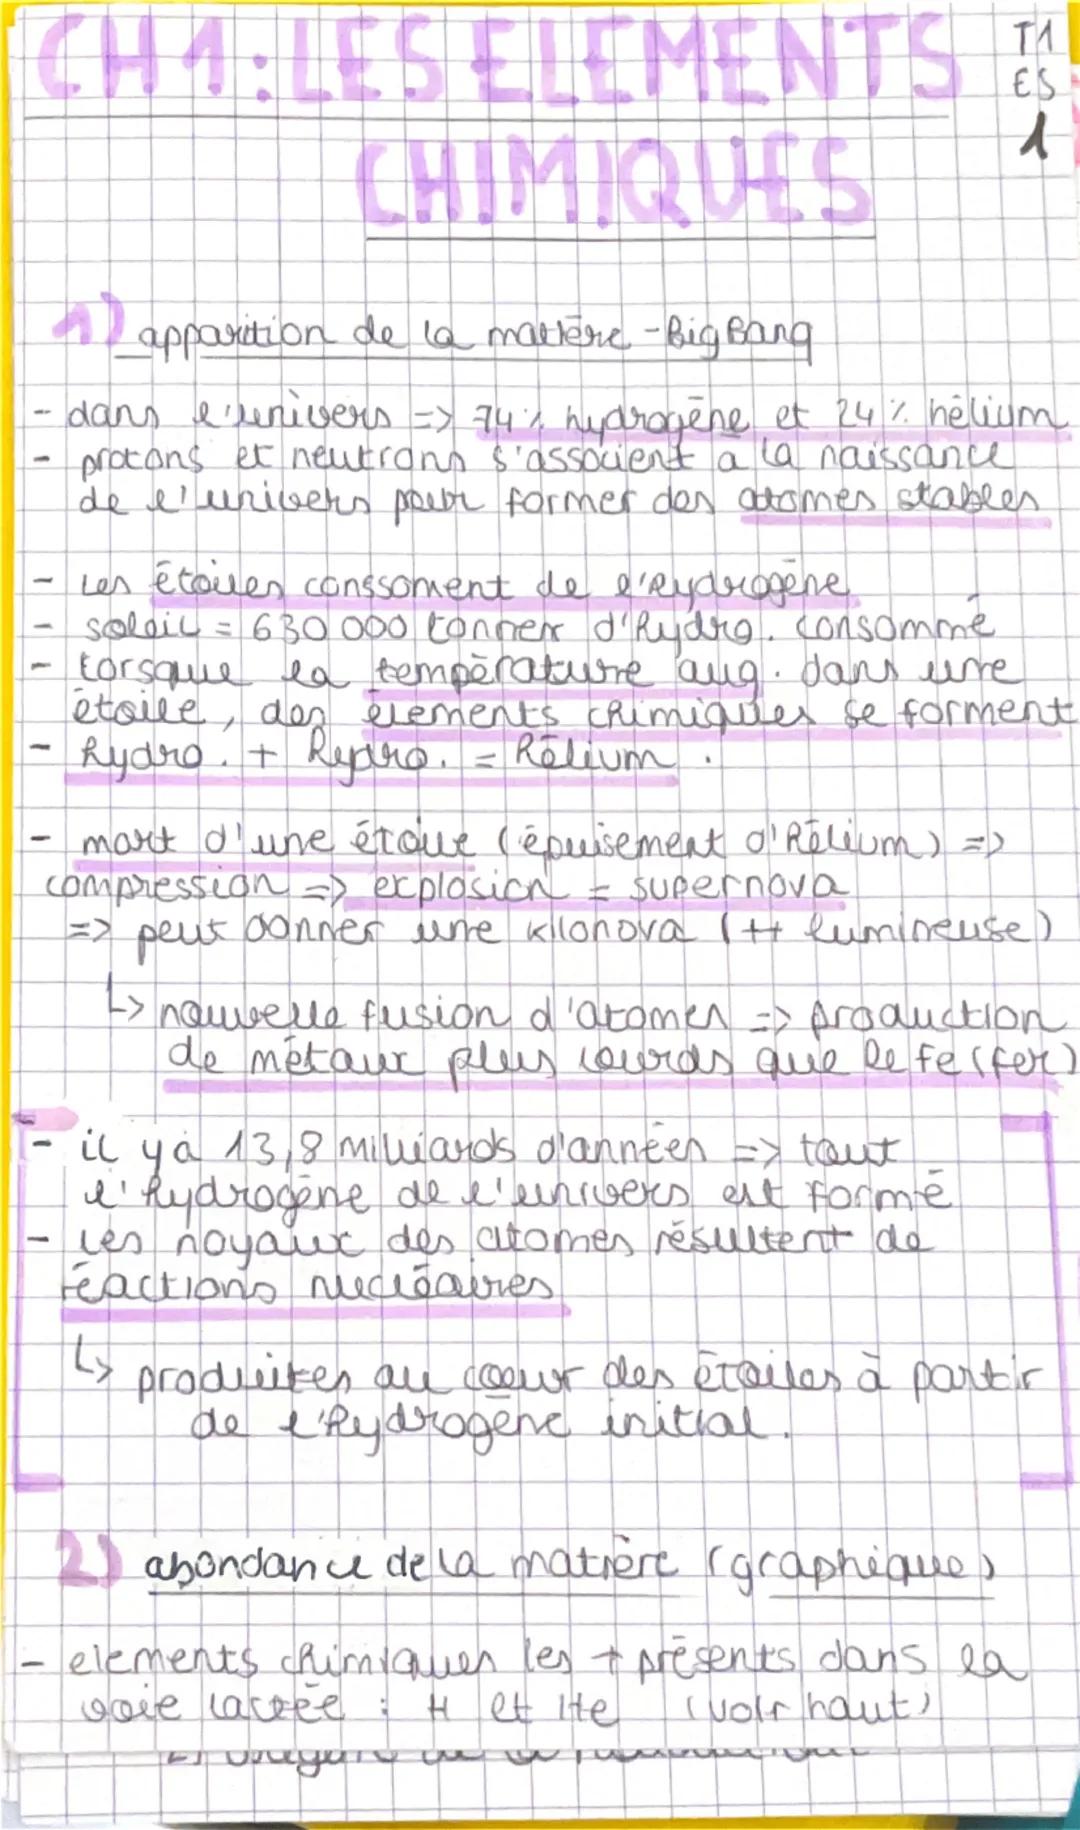 CH1: LES ELEMENTS
CHIMIQUES
T1
ES
1
1) apparition de la matière - Big Bang
- dans l'univers => 74% hydrogène et 24% hélium
- protons et neutrons s'associent a la naissance
de l'univers pour former des atomes stables
- Les étoiles conssoment de l'hydrogène
- soleil = 630 000 tonnes d'hydro. consommé
- Lorsque la température aug. dans une
étoile, des éléments chimiques se forment
- hydro. + hydro. = hélium.
- mort d'une étoile (épuisement d'hélium) =>
compression => explosion = supernova
=> peut donner une kilonova (++ lumineuse)
↳ nouvelle fusion d'atomes => production
de métaux plus lourds que le fe (fer)
- il y a 13,8 milliards d'années => tout
l'hydrogène de l'univers est formé
- Les noyaux des atomes résultent de
réactions nucléaires
↳ produites au coeur des étoiles à partir
de l'hydrogène initial.
2) abondance de la matière (graphique)
- elements chimiques les + présents dans la
voie lactée : H et He (voir haut)